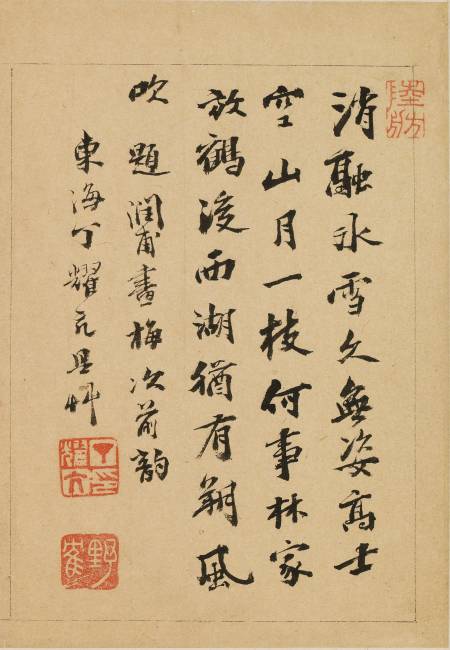 消融冰雪久無姿高士
空山月一枝何事林家
放鶴後西湖猶有朔風
吹 題潤甫畫梅次前韵
東海丁耀亢具艸